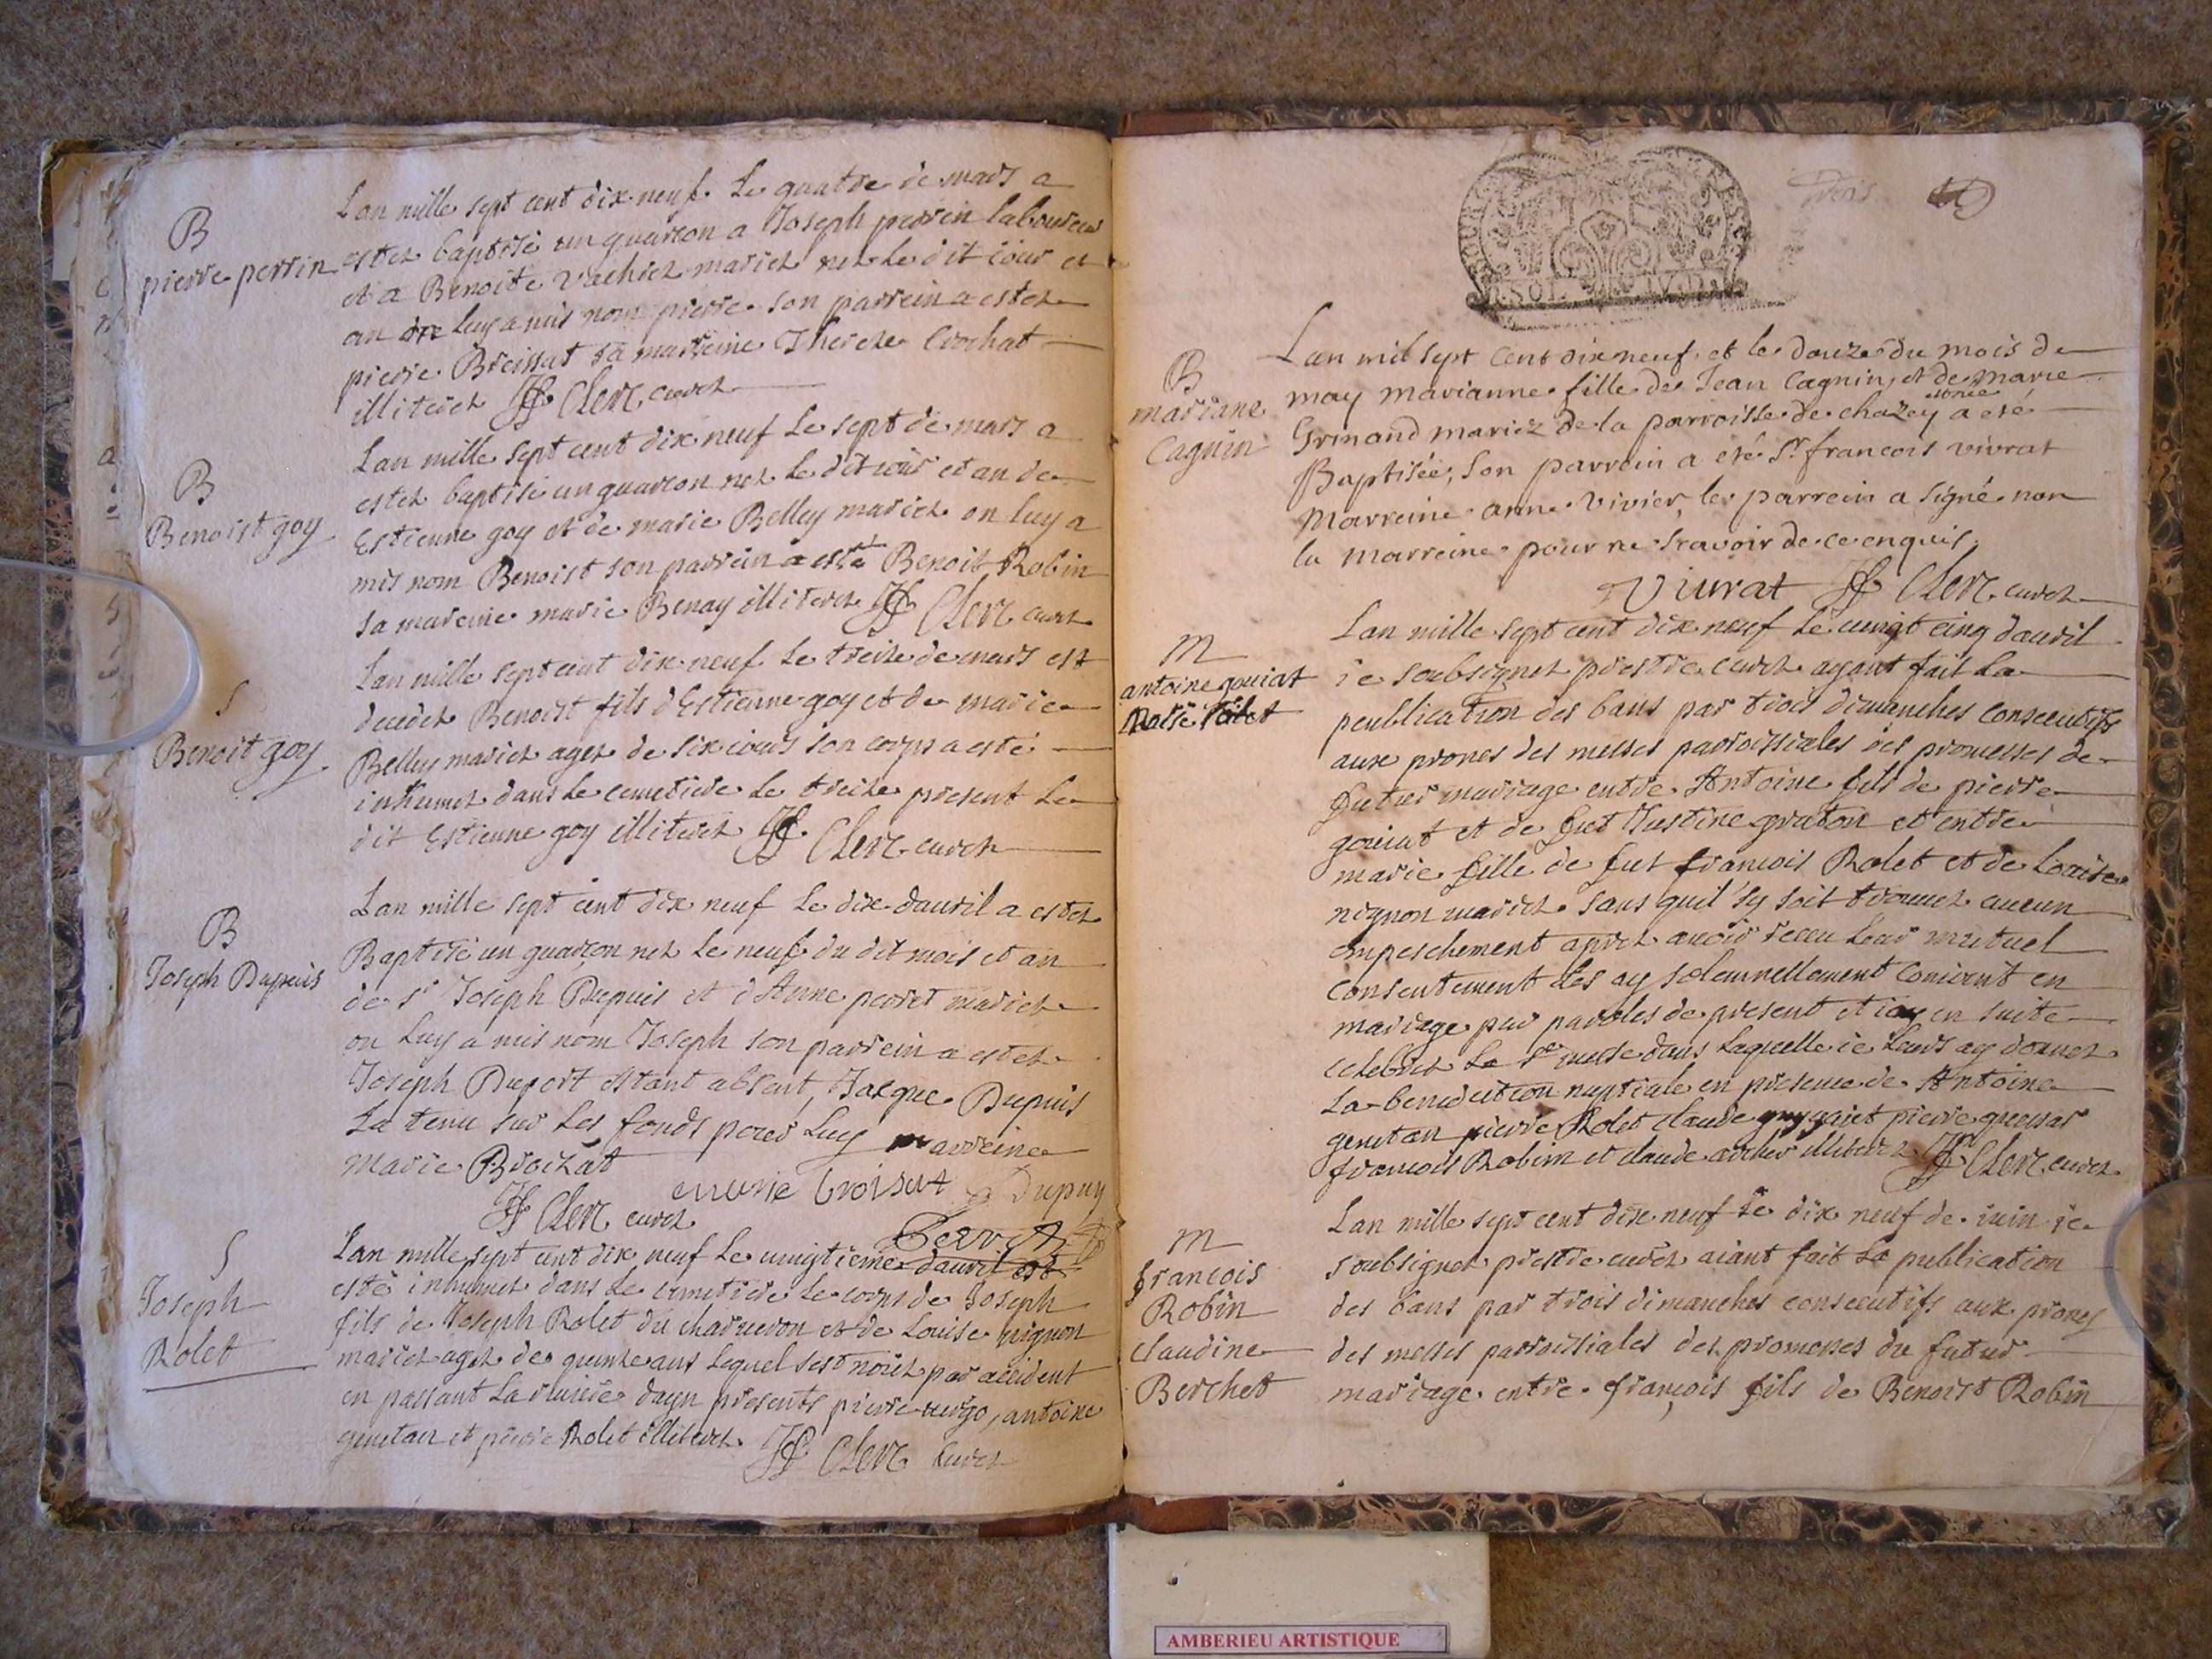 B
pierre perrin
Lan mille sept cent dix neuf Le quatre de mars a
estez baptisé un guarcon a Joseph perrin laboureur
et a Benoite Vachiez mariez nez le dit iour et
an luy a mis nom pierre son parrein a estez
pierre Breissat sa marreine Thereze Crochat
illiterez JF Clerc curez
B
Benoist goy
Lan mille sept cent dix neuf Le sept de mars a
estez baptisé un guarcon nez le dit iour et an de
Estienne goy et de marie Belley mariez on luy a
mis nom Benoist son parrein a esté Benoit Robin
sa mareine marie Benay illiterez JF Clerc curez
S
Benoit goy
Lan mille sept cent dix neuf Le treize de mars est
decedez Benoist fils d'Estienne goy et de marie
Belley mariez agez de six iours son corps a esté
inhumez dans le cemetiere Le treize present Le
dit Estienne goy illiterez JF Clerc curez
B
Joseph Dupuis
Lan mille sept cent dix neuf Le dix dauril a estez
Baptisé un guarçon nez Le neuf du dit mois et an
de sr Joseph Dupuis et d'Anne perret mariez
on Luy a mis nom Joseph son parrein a estez
Joseph Duport estant absent, Jasque Dupuis
La tenu sur Les fonds pour Luy marreine
Marie Brochat
JF Clerc curez Dupuy
Perret
S
Joseph
Rolet
Lan mille sept cent dix neuf Le uingtieme dauril est
esté inhumez dans Le cemetiere Le corps de Joseph
fils de Joseph Rolet du charueron et de Louise nignon
mariez agez de quinze ans Lequel sest noiez par accident
en passant La riuiere dayn presents pierre uergo, antoine
genetan et pierre Rolet illiterez JF Clerc Curez
Trois
B
mariane
Cagnin
Lan mil sept cent dix neuf, et le douze du mois de
may marianne fille de Jean Cagnin, et de marie
Grinand mariez de la parroisse de chazey a eté
Baptisée, Son parrein a eté Sr francois vivrat
Marreine anne Vivier, le parrein a signé non
la marreine pour ne scavoir de ce enquis
Viurat JF Clerc curez
M
antoine gouiat
Marie Rolet
Lan mille sept cent dix neuf Le uingt cinq dauril
ie soubsignez prestre curez ayant fait La
peublication des bans par trois dimanches consecutifs
aux prones des messes parroissiales des promesses de
futur mariage entre Antoine fils de pierre
gouiat et de fut Justine graton et entre
marie fille de fut francois Rolet et de Louise
nignon mariez sans quil s'y soit trouuez aucun
empeschement aprez auoir receu Leur mutuel
consentement Les ay solemnellement conioint en
mariage par paroles de present et iay en suite
celebrez La ste messe dans Laquelle ie Leurs ay donnez
La benediction nuptiale en presence de Antoine
genetan pierre Rolet claude pierre
francois Robin et claude archer illiterez JF Clerc curez
M
francois
Robin
claudine
Berchet
Lan mille sept cent dix neuf Le dix neuf de iuin ie
soubsignez prestre curez aiant fait La publication
des bans par trois dimanches consecutifs aux prones
des messes parroissiales des promesses du futur
mariage entre françois fils de Benoist Robin
AMBERIEU ARTISTIQUE